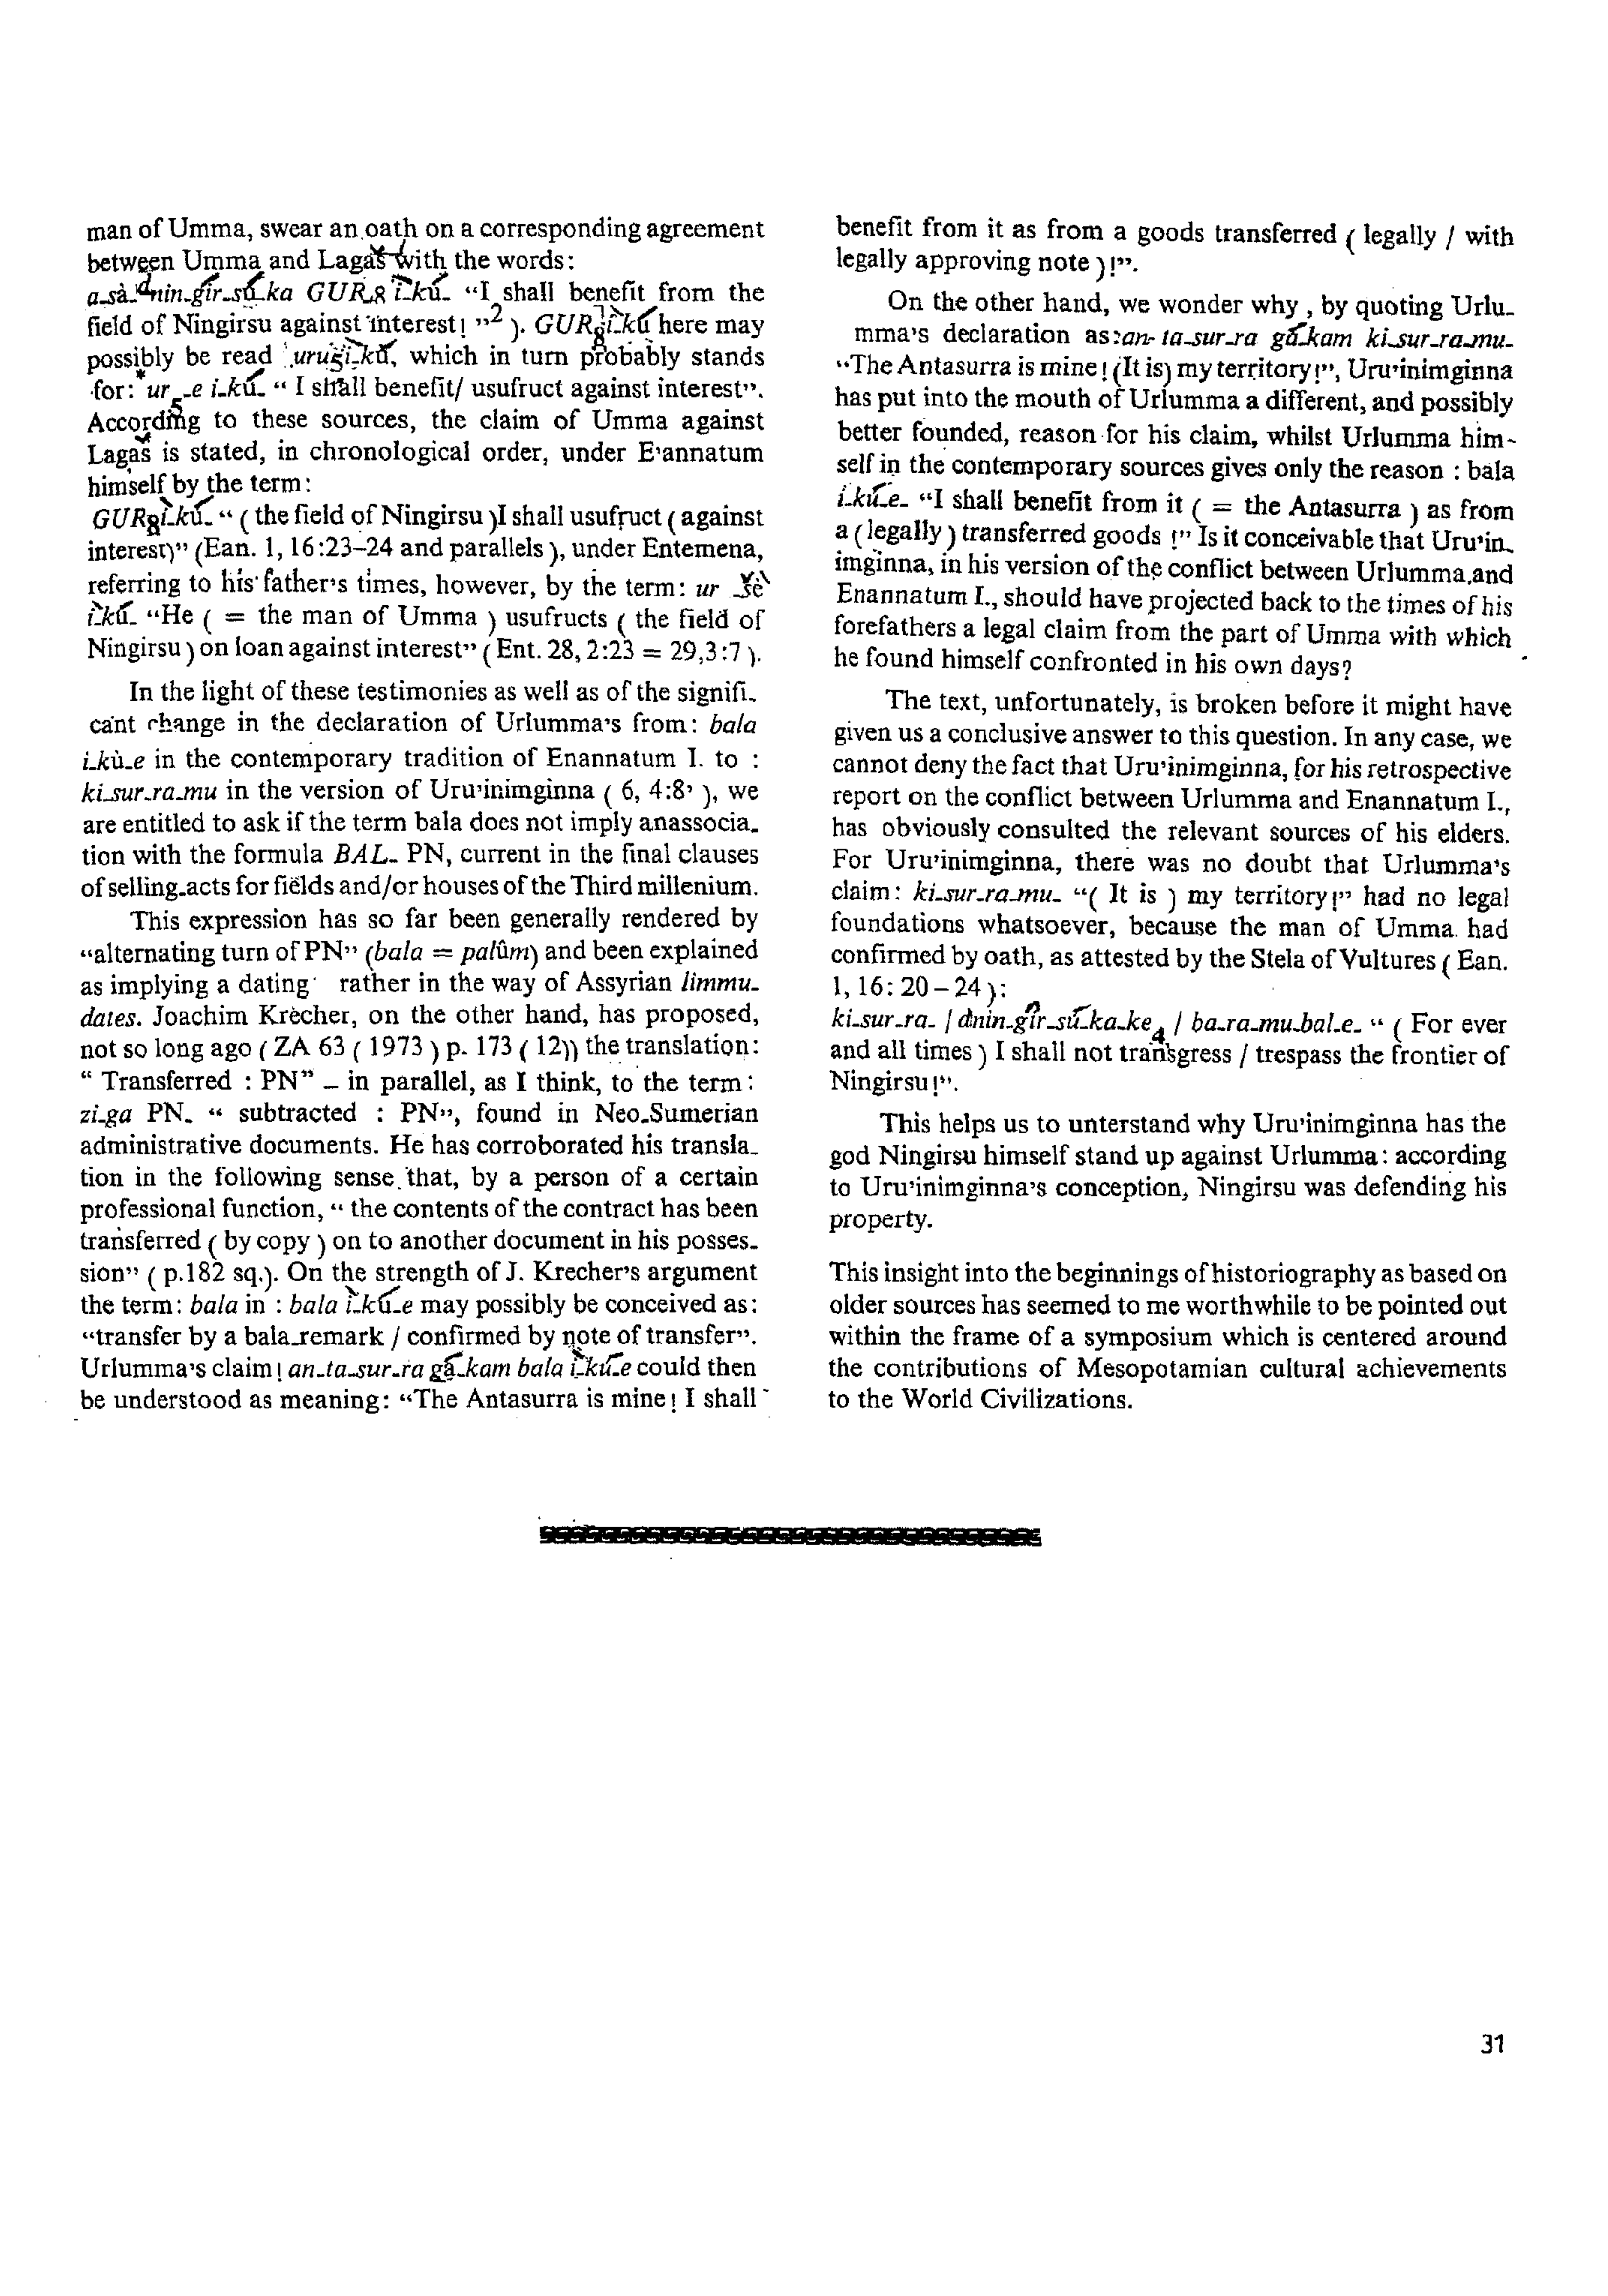 man of Umma, swear an oath on a corresponding agreement
between Umma and Lagaš with the words:
a-šà-dnin-gír-sú-ka GUR8 ì-kú- “I shall benefit from the
field of Ningirsu against interest! ”2 ). GUR8 ì-kú here may
possibly be read uru5 ì-kú, which in turn probably stands
for: *ur5-e i-kú- “ I shall benefit/ usufruct against interest”.
According to these sources, the claim of Umma against
Lagaš is stated, in chronological order, under E'annatum
himself by the term:
GUR8 ì-kú- “ ( the field of Ningirsu )I shall usufruct ( against
interest)” (Ean. 1, 16:23–24 and parallels ), under Entemena,
referring to his father's times, however, by the term: ur -šè
ì-kú- “He ( = the man of Umma ) usufructs ( the field of
Ningirsu ) on loan against interest” ( Ent. 28, 2:23 = 29,3:7 ).
In the light of these testimonies as well as of the signifi-
cant change in the declaration of Urlumma's from: bala
i-kù-e in the contemporary tradition of Enannatum I. to :
ki-sur-ra-mu in the version of Uru'inimginna ( 6, 4:8' ), we
are entitled to ask if the term bala does not imply anassocia-
tion with the formula BAL- PN, current in the final clauses
of selling-acts for fields and/or houses of the Third millenium.
This expression has so far been generally rendered by
“alternating turn of PN” (bala = palûm) and been explained
as implying a dating rather in the way of Assyrian limmu-
dates. Joachim Krecher, on the other hand, has proposed,
not so long ago ( ZA 63 ( 1973 ) p. 173 ( 12)) the translation:
“ Transferred : PN” – in parallel, as I think, to the term :
zi-ga PN- “ subtracted : PN”, found in Neo-Sumerian
administrative documents. He has corroborated his transla-
tion in the following sense that, by a person of a certain
professional function, “ the contents of the contract has been
transferred ( by copy ) on to another document in his posses-
sion” ( p.182 sq.). On the strength of J. Krecher's argument
the term: bala in : bala ì-kú-e may possibly be conceived as:
“transfer by a bala-remark / confirmed by note of transfer”.
Urlumma's claim! an-ta-sur-ra gá-kam bala ì-kú-e could then
be understood as meaning: “The Antasurra is mine! I shall
benefit from it as from a goods transferred ( legally / with
legally approving note )!”.
On the other hand, we wonder why , by quoting Urlu-
mma's declaration as:an- ta-sur-ra gá-kam ki-sur-ra-mu-
“The Antasurra is mine! (It is) my territory!”, Uru'inimginna
has put into the mouth of Urlumma a different, and possibly
better founded, reason for his claim, whilst Urlumma him-
self in the contemporary sources gives only the reason : bala
ì-kú-e- “I shall benefit from it ( = the Antasurra ) as from
a ( legally ) transferred goods !” Is it conceivable that Uru'in-
imginna, in his version of the conflict between Urlumma and
Enannatum I., should have projected back to the times of his
forefathers a legal claim from the part of Umma with which
he found himself confronted in his own days?
The text, unfortunately, is broken before it might have
given us a conclusive answer to this question. In any case, we
cannot deny the fact that Uru'inimginna, for his retrospective
report on the conflict between Urlumma and Enannatum I.,
has obviously consulted the relevant sources of his elders.
For Uru'inimginna, there was no doubt that Urlumma's
claim: ki-sur-ra-mu- “( It is ) my territory!” had no legal
foundations whatsoever, because the man of Umma had
confirmed by oath, as attested by the Stela of Vultures ( Ean.
1, 16: 20 – 24 ):
ki-sur-ra- / dnin-gír-sú-ka-ke4 / ba-ra-mu-bal-e- “ ( For ever
and all times ) I shall not transgress / trespass the frontier of
Ningirsu!”.
This helps us to unterstand why Uru'inimginna has the
god Ningirsu himself stand up against Urlumma: according
to Uru'inimginna's conception, Ningirsu was defending his
property.
This insight into the beginnings of historiography as based on
older sources has seemed to me worthwhile to be pointed out
within the frame of a symposium which is centered around
the contributions of Mesopotamian cultural achievements
to the World Civilizations.
31